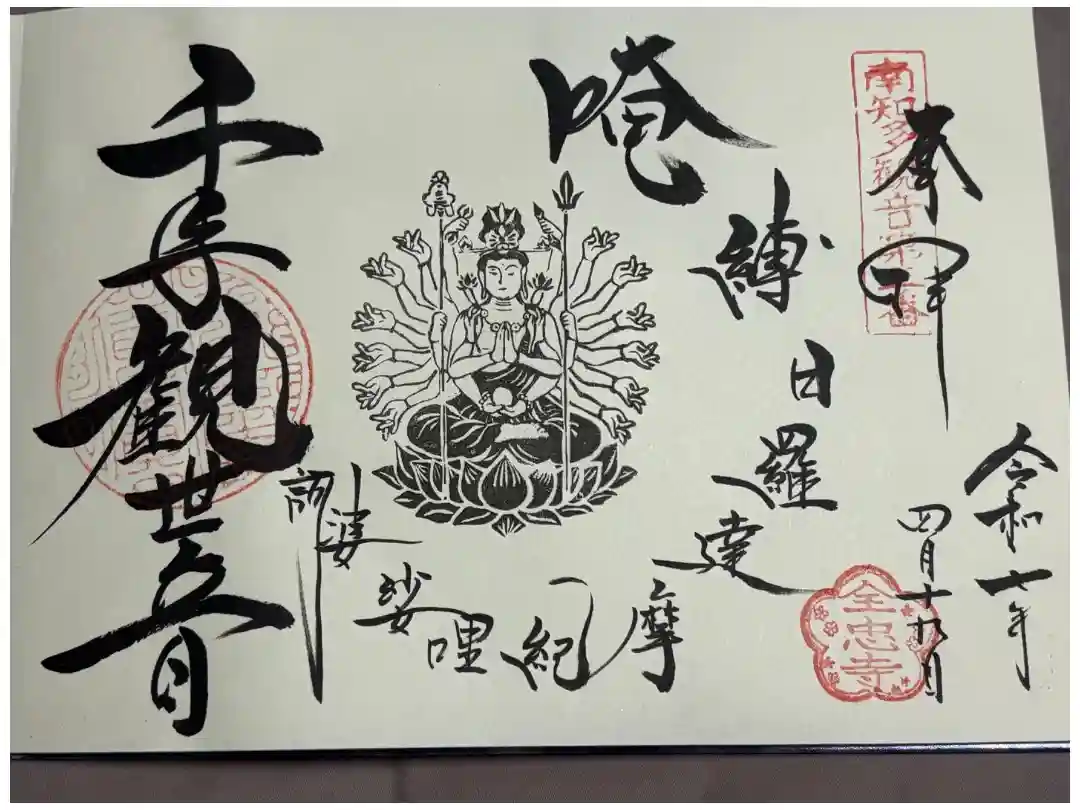 奉拝
南知多観音第番
令和七年
四月十九日
全忠寺
唵縛日羅達摩紀哩娑婆訶
千手観世音